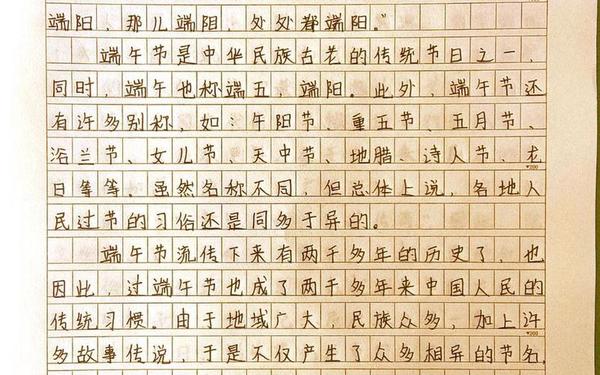 端阳，那儿端阳，处处都端阳。”
端午节是中华民族古老的传统节日之一，
同时，端午也称端五，端阳。此外，端午节还
有许多别称，如：午阳节、重五节、五月节、
浴兰节、女儿节、天中节、地腊、诗人节、龙
日等等。虽然名称不同，但总体上说，各地人
民过节的习俗还是同多于异的。
端午节流传下来有两千多年的历史了，也
因此，过端午节也成了两千多年来中国人民的
传统习惯。由于地域广大，民族众多，加上许
多故事传说，于是不仅产生了众多相异的节名，